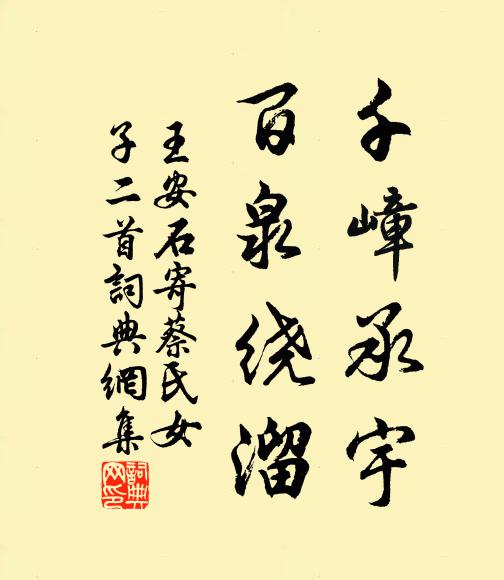 千嶂承宇
百泉绕溜
王安石寄蔡氏女
子二首詞典網集
詞典網印